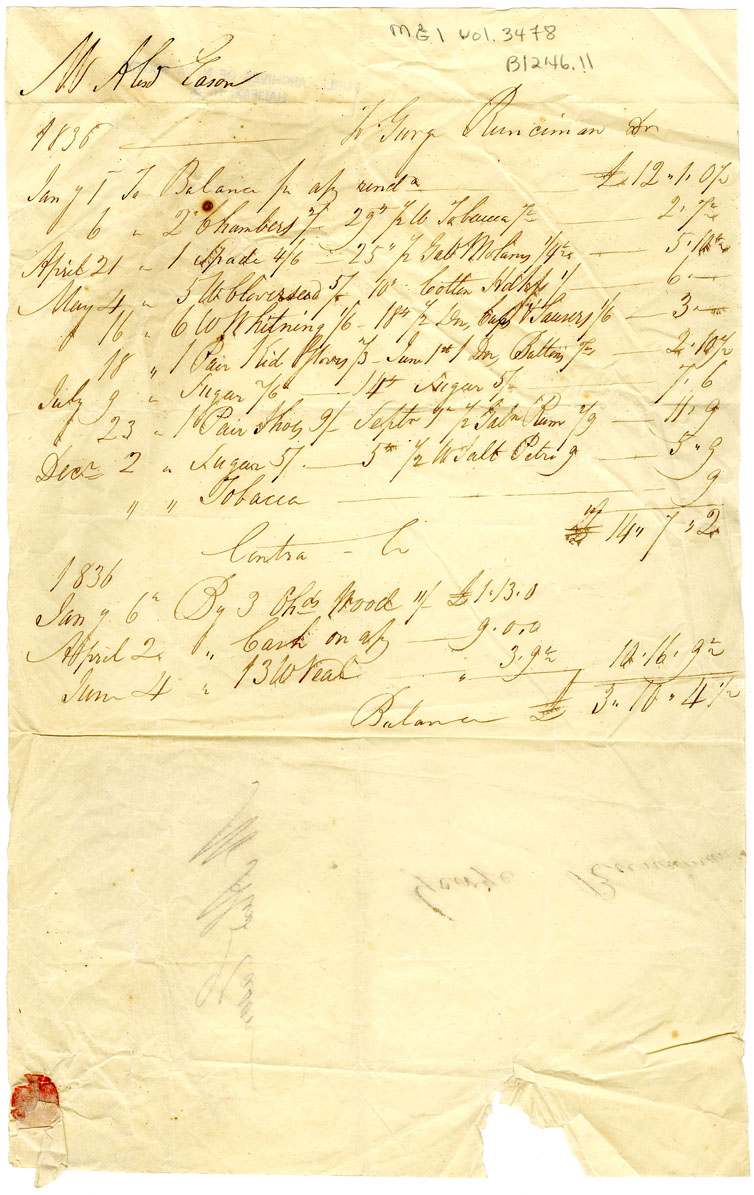 MG1 vol. 3478
B1246.11
Mr Alexr Eason
1836 To George Runciman Dr
Jany 1 To Balance pr a/c rendd £ 12 " 1 . 0 1/2
6 " 2 Chambers 2/ 29th 1/2 lb Tobacco 7 1/2 2 . 7 1/2
April 21 " 1 Spade 4/6 25th 1/2 Gall 5 . 10 1/2
May 4 " 5 lb Cloverseed 5/ 10th Cotton Hdkfs 1/ 6 . —
16 " 6 lb Whitning 1/6 18th 1/2 Dn Cups & Sausers 1/6 3 . —
18 " 1 Pair Kid Gloves 2/3 June 1st 1 Dn Buttons 7 1/2 2 . 10 1/2
July 9 " Sugar 2/6 14th Sugar 5/ 7 . 6
23 " 1 Pair Shoes 9/ Septr 1/2 Galn Rum 2/9 11 . 9
Decr 2 " Sugar 5/ 5th 1/2 lb Salt Petre 9 5 " 9
" " Tobacco 9
£ 14 " 7 " 2
Contra Cr
1836
Jany 6th By 3 Chds Wood 11/ £ 1 . 13 . 0
April 2 " Cash on a/c 9 . 0 . 0
June 4 " 13 lb Veal " 3 . 9 1/2 10 . 16 . 9 1/2
Balance £ 3 " 10 " 4 1/2
George Runciman